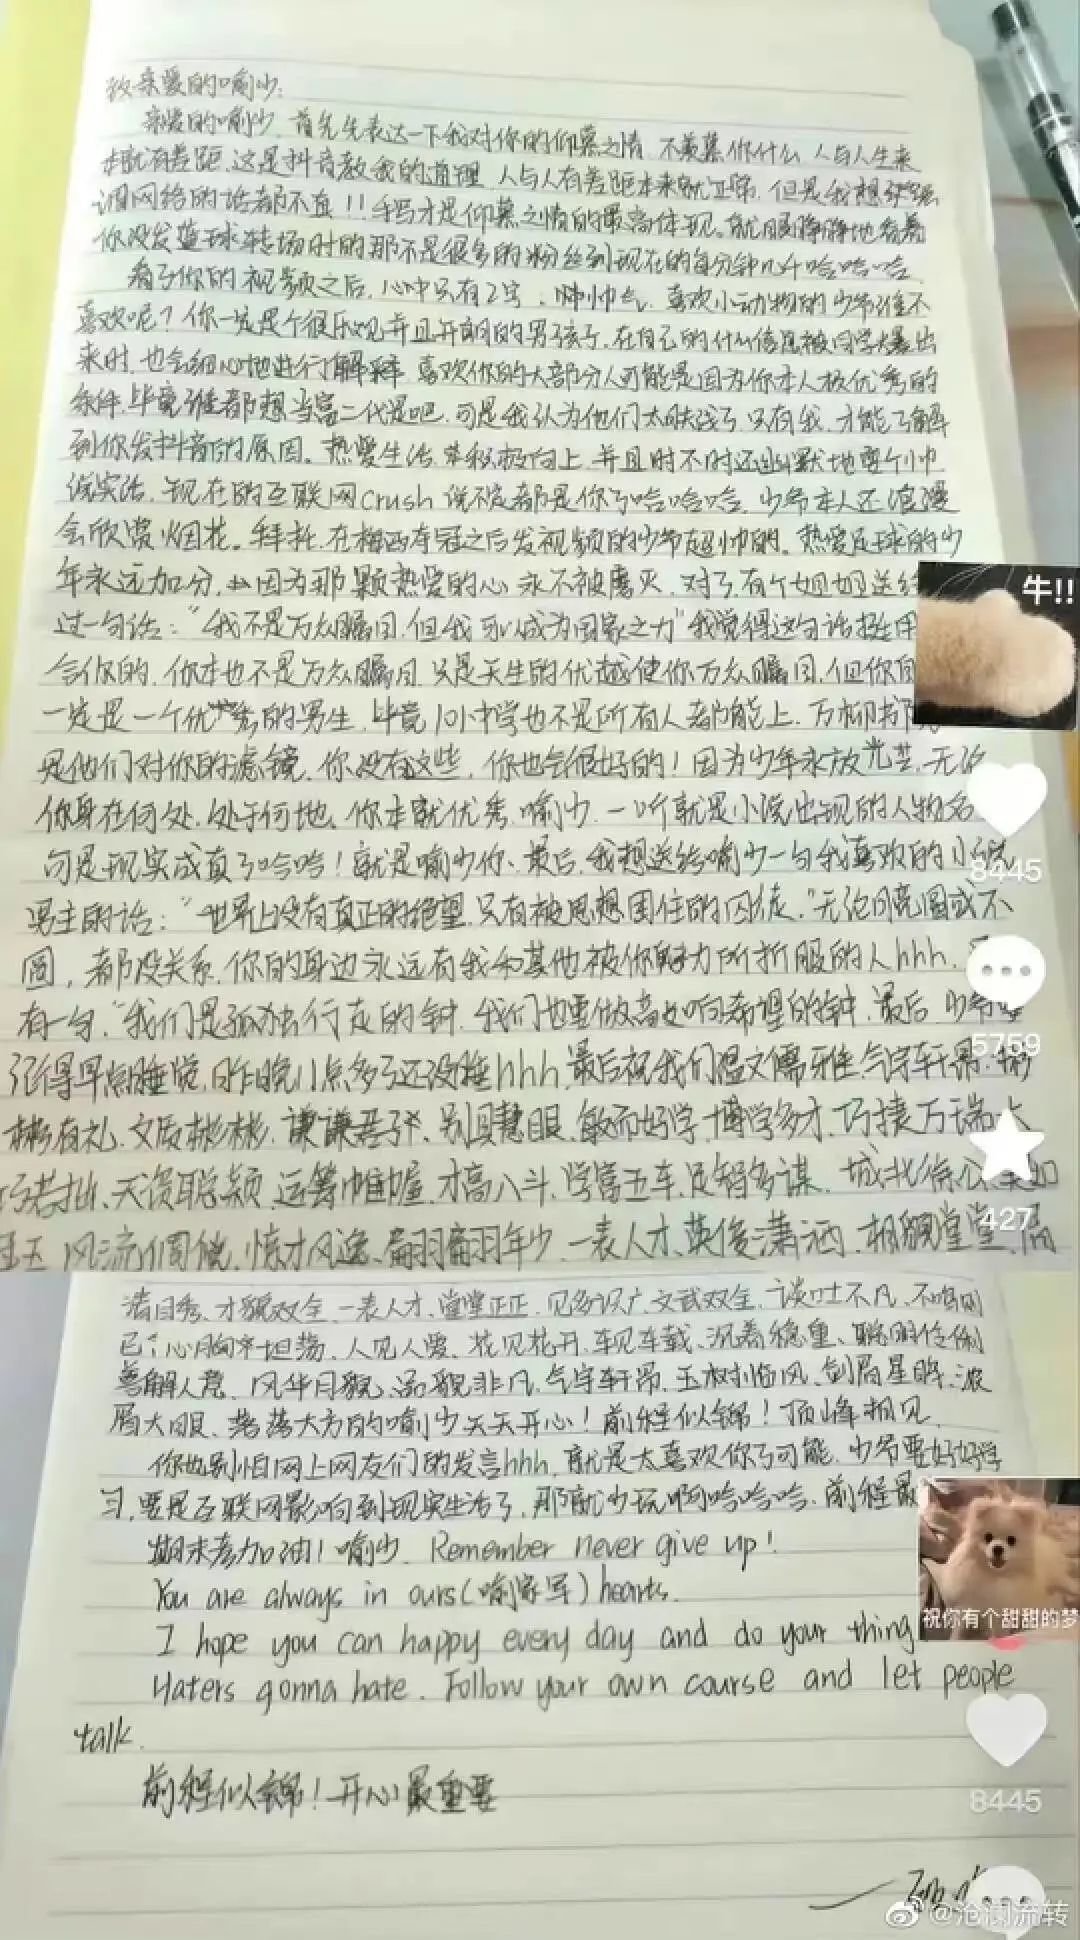 致亲爱的喻少:
亲爱的喻少,首先先表达一下我对你的仰慕之情,不羡慕你什么,人与人生来
本就有差距,这是抖音教我的道理,人与人有差距本来就正常,但是我想
网络的话都不真!!手写才是仰慕之情的最高体现。就眼睁睁地看着
你没发篮球转场时的那不是很多的粉丝到现在的每分钟几千哈哈哈
看了你的视频之后,心中只有2字:帅帅气,喜欢小动物的少爷谁不
喜欢呢?你一定是个很乐观并且开朗的男孩子,在自己的什么信息被同学爆出
来时,也会细心地进行解释,喜欢你的大部分人可能是因为你本人极优秀的
条件,毕竟谁都想当富二代是吧,可是我认为他们太肤浅了,只有我,才能了解
到你发抖音的原因。热爱生活,积极向上,并且时不时还幽默地耍个小帅
说实话,现在的互联网crush说不定都是你了哈哈哈,少爷本人还浪漫
会欣赏烟花。拜托,在梅西夺冠之后发视频的少爷超帅的。热爱足球的少
年永远加分,因为那颗热爱的心永不被磨灭,对了,有个姐姐送给
过一句话:“我不是万众瞩目,但我可以成为国家之力”我觉得这句话挺
合你的,你本也不是万众瞩目,只是天生的优越使你万众瞩目,但你
一定是一个优秀的男生,毕竟101中学也不是所有人都能上,万柳书
是他们对你的滤镜,你没有这些,你也会很好的!因为少年永放光芒,无论
你身在何处,处于何地,你本就优秀,喻少,一听就是小说出现的人物名
可是现实成真了哈哈!就是喻少你、最后,我想送给喻少一句我喜欢的小说
男主的话:“世界上没有真正的绝望,只有被思想困住的囚徒,”无论月亮圆或不
圆,都没关系,你的身边永远有我和其他被你魅力所折服的人hhh,
有一句,“我们是孤独行走的钟,我们也要做高处响希望的钟,最后,少爷
记得早点睡觉,昨晚11点多了还没睡hhh,最后祝我们温文儒雅、气宇轩昂、
彬有礼、文质彬彬、谦谦君子、别具慧眼、敏而好学、博学多才、巧捷万端、大
巧若拙、天资聪颖、运筹帷幄、才高八斗、学富五车、足智多谋、城北徐公、美如
冠玉、风流倜傥、惊才风逸、翩翩年少、一表人才、英俊潇洒、相貌堂堂、眉
清目秀、才貌双全、一表人才、堂堂正正、见多识广、文武双全、谈吐不凡、不鸣则
已、心胸坦荡、人见人爱、花见花开、车见车载、沉着稳重、聪明伶俐
善解人意、风华月貌、品貌非凡、气宇轩昂、玉树临风、剑眉星眸、浓
眉大眼、落落大方的喻少天天开心!前程似锦!顶峰相见
你也别怕网上网友们的发言hhh,就是太喜欢你了可能,少爷要好好学
习,要是互联网影响到现实生活了,那就少玩啊哈哈哈,前程
期末考加油!喻少,Remember never give up!
You are always in ours(喻家军)hearts.
I hope you can happy every day and do your thing
Haters gonna hate. Follow your own course and let people
talk.
前程似锦!开心最重要
牛!!
8445
5759
427
祝你有个甜甜的梦
8445
@沧澜流转